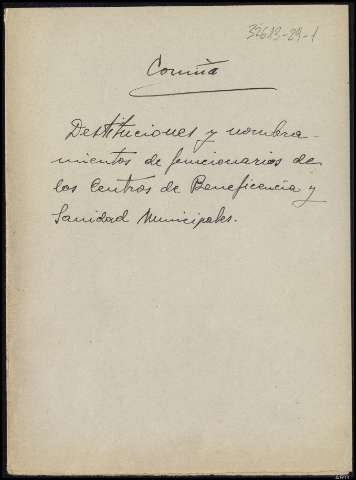 32613-29-1
Coruña
Destituciones y nombra-
mientos de funcionarios de
los Centros de Beneficencia y
Sanidad Municipales.